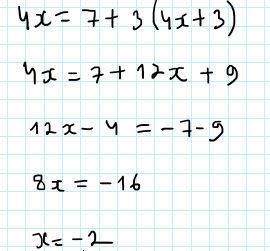 4x = 7 + 3 (4x + 3)
4x = 7 + 12x + 9
12x - 4 = -7 - 9
8x = -16
x = -2